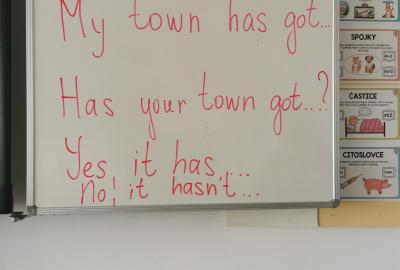 My town has got...
Has your town got...?
Yes it has....
No! it hasn't...
SPOJKY
ČÁSTICE
CITOSLOVCE